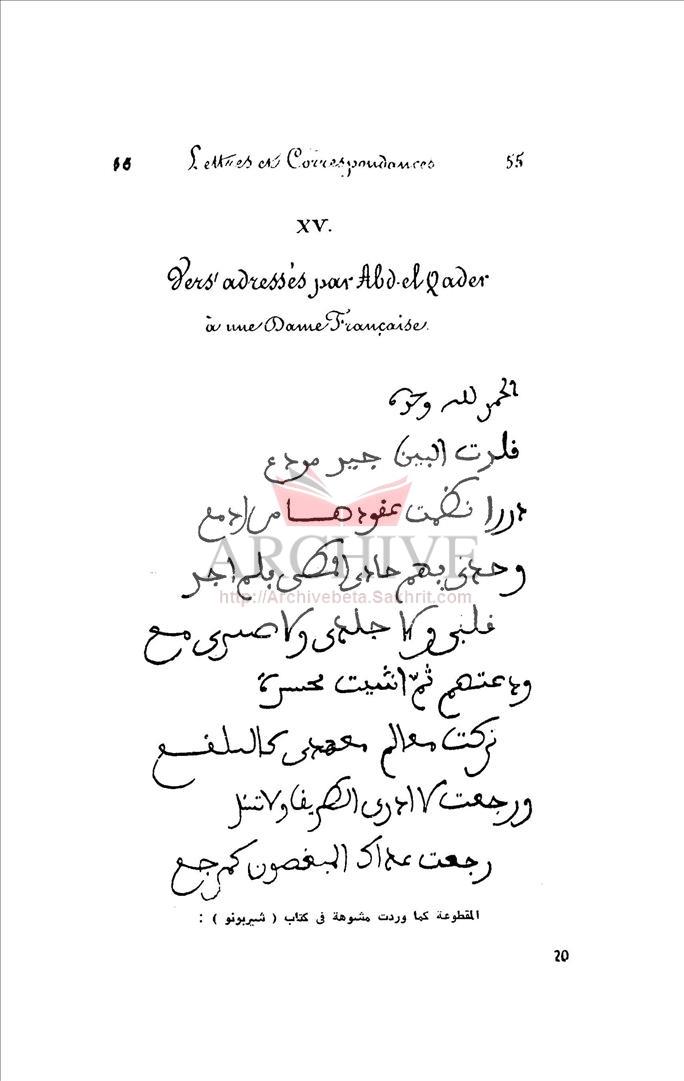 16 Lettres et Correspondances 55
XV.
Vers adressés par Abd-el Qader
à une Dame Française.
الحمد لله وحده
البين مودع
دررا نظمت عقودها من ادمع
وحدى بهم حادى فلم اجد
قلبي ولا جلدى ولا صبرى مع
ودعتهم ثم انثنيت بحسرة
تركت معالم معهدى كالبلقع
ورجعت لا ادرى الطريق ولا تسل
رجعت عداك المبغضون كمرجع
ARCHIVE
http://Archivebeta.Sakhrit.com
المقطوعة كما وردت مشوهة فى كتاب ( شيربونو ) :
20